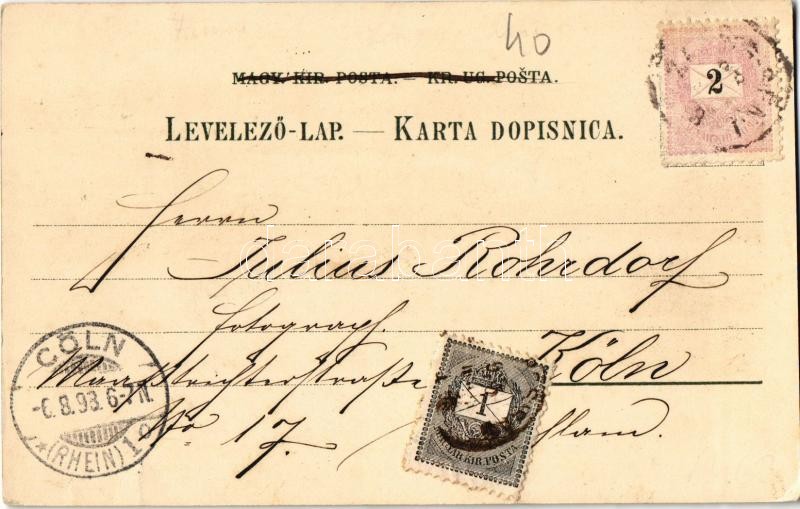 40
2
MAGY. KIR. POSTA. — KR. UG. POŠTA.
LEVELEZŐ-LAP. — KARTA DOPISNICA.
Herrn
Julius Rohrdorf
fotograph.
Köln
Maastrichterstraße
No 17.
CÖLN
-6.8.98. 6-7 N.
*(RHEIN) 1
1
MAGY. KIR. POSTA
darabanth